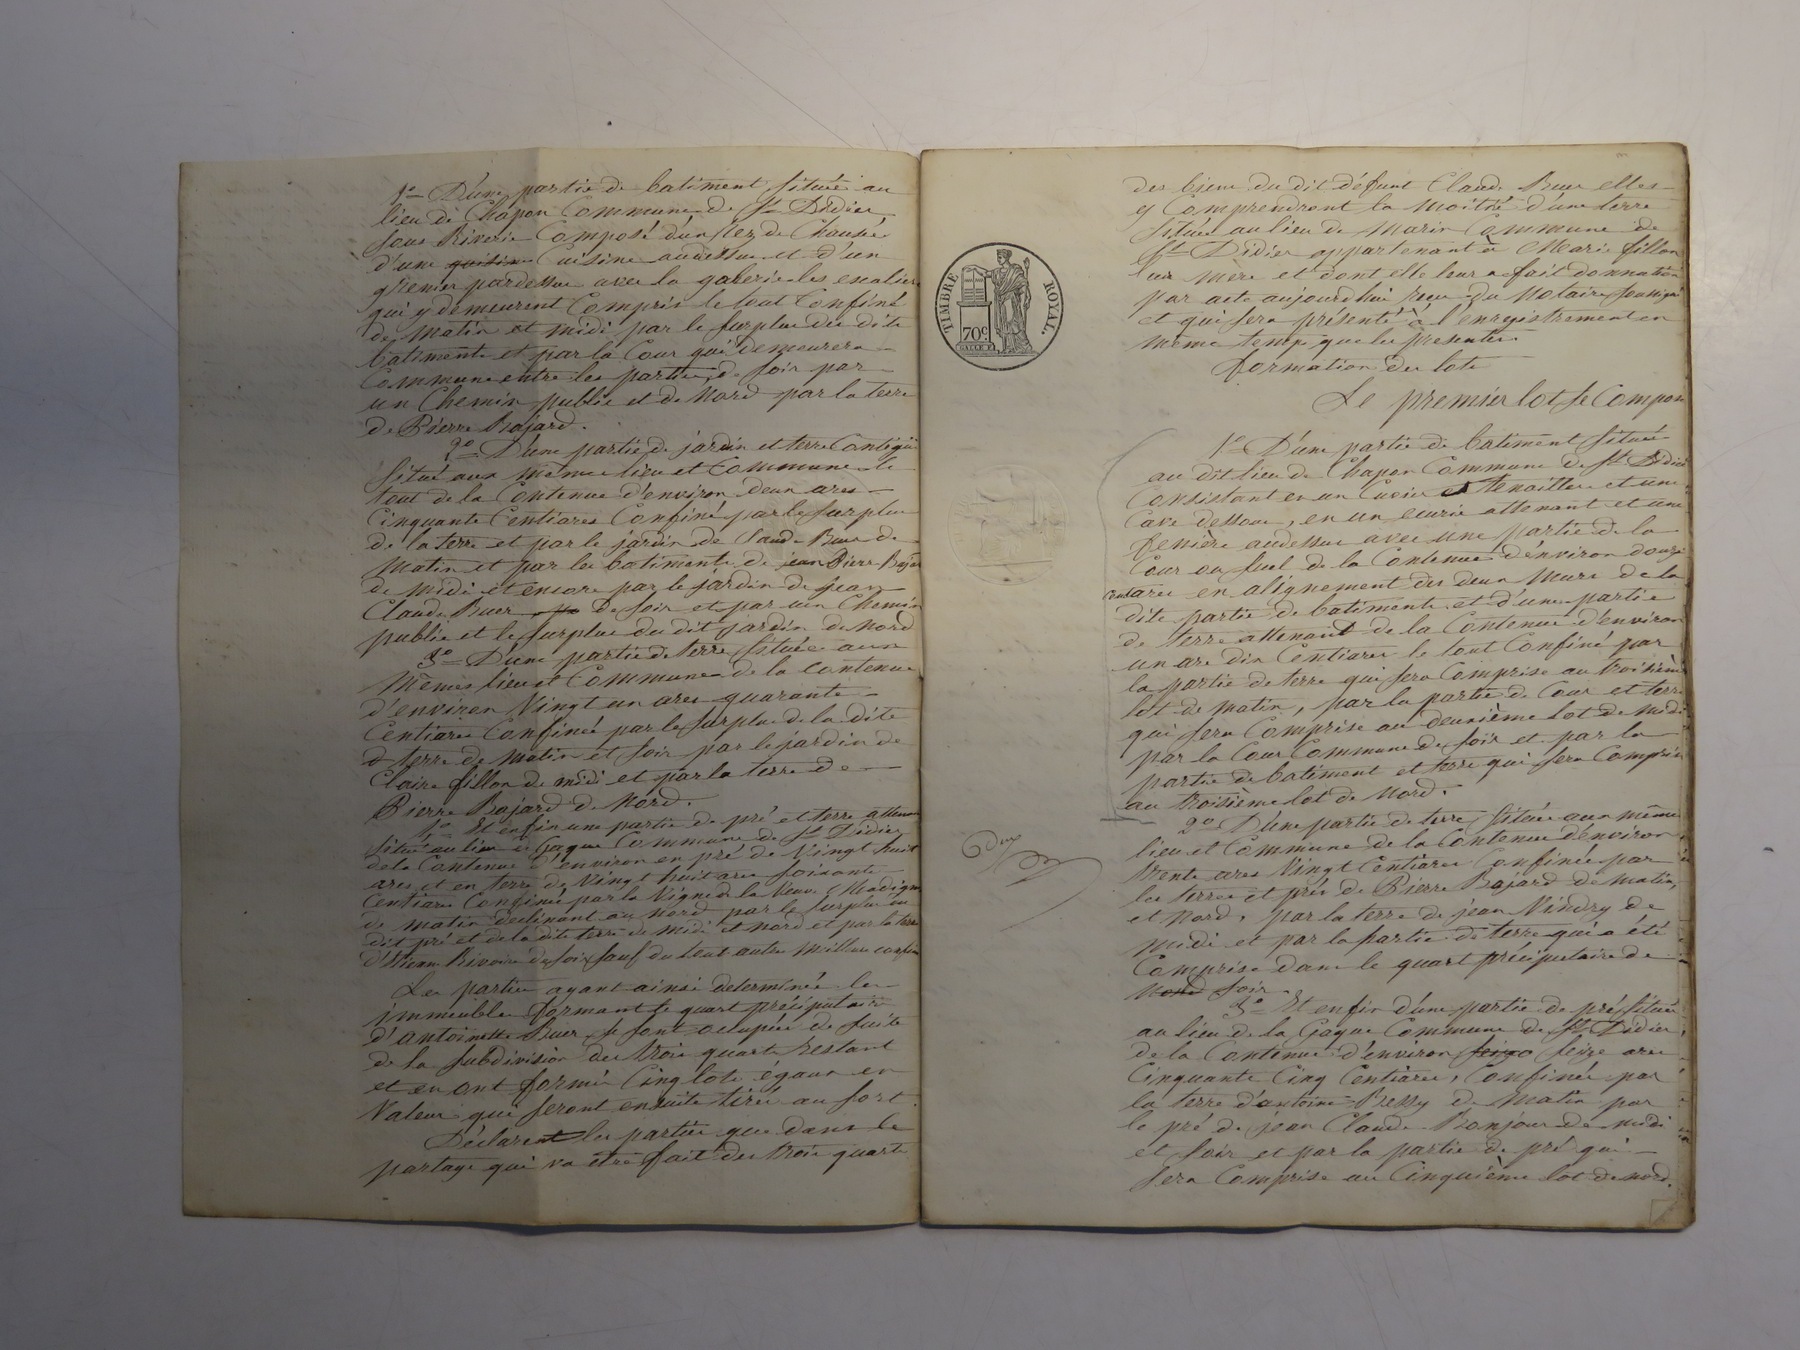 1º D'une partie de batiment située au
lieu de Chapon Commune de St Didier
sous Riverie Composé d'un Rez de Chaussé
d'une cuisine audessus et d'un
grenier pardessus avec la galerie les escaliers
qui y demeurent Compris le tout Confiné
de matin et midi par le surplus des dits
batiments et par la Cour qui demeurera
Commune entre les parties, de soir par
un Chemin public et de Nord par la terre
de Pierre Bajard.
2º D'une partie de jardin et terre Contigüe
situé aux mêmes lieu et Commune le
tout de la Contenue d'environ deux ares
Cinquante Centiares Confiné par le surplus
de la terre et par le jardin de Claude Buer de
matin et par les batiments de jean Pierre Bajard
de midi et encore par le jardin de jean
Claude Buer de soir et par un Chemin
public et le surplus du dit jardin de Nord
3º D'une partie de terre située aux
Mêmes lieu et Commune de la contenue
d'environ Vingt un ares quarante
Centiares Confinée par le surplus de la dite
terre de matin et soir par le jardin de
Claire fillon de midi et par la terre de
Pierre Bajard de Nord.
4º Et enfin une partie de pré et terre attenant
situé au lieu de gaque Commune de St Didier
de la Contenue d'environ en pré de Vingt huit
ares et en terre de Vingt huit ares soixante
Centiares Confinée par la Vigne de la Veuve
de matin declinant au nord par le surplus du
dit pré et de la dite terre de midi et nord et par la terre
d'Etienne Rivoire de soir, sauf du tout autre meilleur confin
Les parties ayant ainsi determinée les
immeubles formant le quart préciputaire
d'antoinette Buer se sont occupées de suite
de la subdivision des trois quarts restant
et en ont formés Cinq lots égaux en
Valeur qui seront ensuite tirés au sort.
Déclarent les parties que dans le
partage qui va être fait des trois quarts
TIMBRE ROYAL.
70c
des biens du dit défunt Claude Buer elles
y Comprendront la moitié d'une terre
située au lieu de Marin Commune de
St Didier appartenant à Marie fillon
leur mère et dont elle leur a fait donnation
par acte aujourd'hui reçu du Notaire soussigné
et qui sera présenté à l'enregistrement en
même temp que les présentes
formation des lots
Le premier lot se Compose
1º D'une partie de batiment située
au dit lieu de Chapon Commune de St Didier
Consistant en un Cuvier et tenailler et une
Cave dessous, en un ecurie attenant et une
fenière audessus avec une partie de la
Cour ou suel de la Contenue d'environ douze
centiares en alignement des deux Meurs de la
dite partie de batiments et d'une partie
de terre attenant de la Contenue d'environ
un are dix Centiares le tout Confiné par
la partie de terre qui sera Comprise au troisième
lot de matin, par la partie de Cour et terre
qui sera Comprise au deuxième lot de midi
par la Cour Commune de soir et par la
partie de batiment et terre qui sera Comprise
au troisième lot de Nord.
2º D'une partie de terre située aux même
lieu et Commune de la Contenue d'environ
trente ares Vingt Centiares Confinée par
les terres et prés de Pierre Bajard de matin,
et Nord, par la terre de jean Vindry de
midi et par la partie de terre qui a été
Comprise dans le quart préciputaire de
Nord soir
3º Et enfin d'une partie de pré située
au lieu de la Gaque Commune de St Didier
de la Contenue d'environ seize ares
Cinquante Cinq Centiares, Confinée par
la terre d'antoine Bressy de Matin par
le pré de jean Claude Bonjour de midi
et soir et par la partie de pré qui
sera Comprise au Cinquième lot de nord.